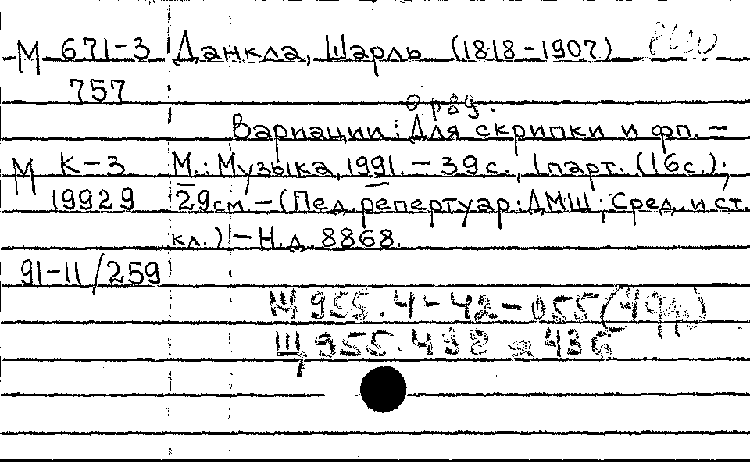 М 671-3 Данкла, Шарль (1818-1907)
757
Вариации: Для скрипки и фп. –
М К-3 М.: Музыка, 1991. – 39 с., 1 парт. (16 с.);
19929 29 см – (Пед. репертуар: ДМШ; Сред. и ст.
кл.) – Н.д. 8868.
91-11/259
Щ 955.4-42-055
Щ 955.438 я 436